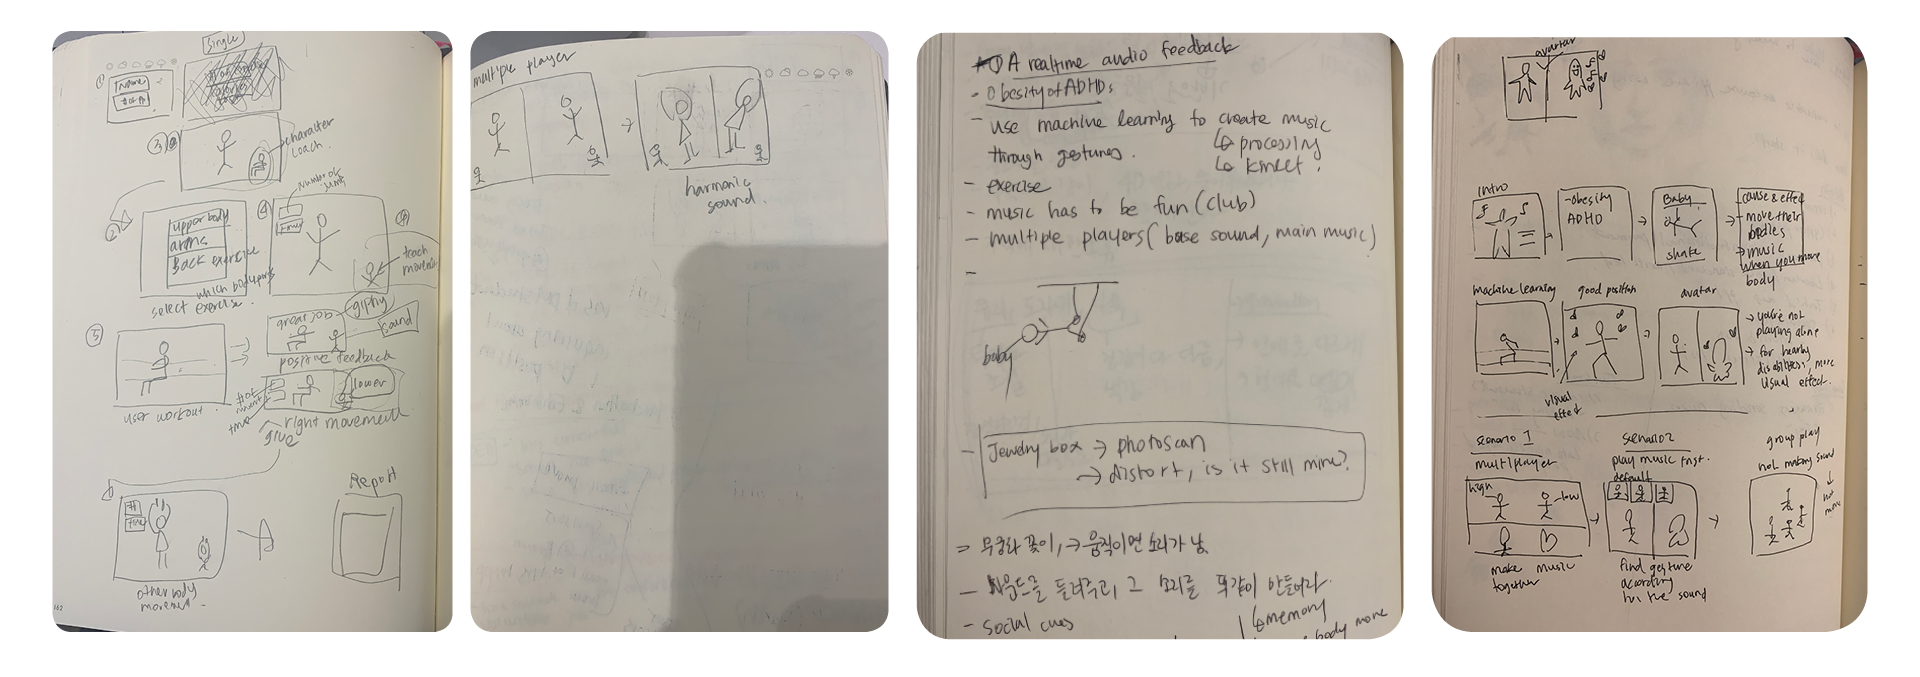 single
①
name
③
character
coach.
②
upper body
arms
back exercise
which body parts
select exercise.
④
number of
jump
teach
movement
⑤
user workout.
great job
giphy
sound
positive feedback
lower
# of
time
right movement
give
#
time
other body
movement.
Report
162
multiple player
harmonic
sound.
A realtime audio feedback
- obesity of ADHDs
- use machine learning to create music
through gestures.
↳ processing
↳ kinect.
- exercise
- music has to be fun (club)
- multiple players (base sound, main music)
-
baby
- Jewelry box → photoscan
→ distort, is it still mine?
⇒ 무궁화 꽃이, → 움직이면 소리가 남.
- 사운드를 들려주고, 그 소리를 똑같이 만들어라.
- social cues
↳ memory
body more
avatar
intro
-obesity
ADHD
Baby
shake
cause & effect
→ move their
bodies
→ music
when you move
body
machine learning
good position
avatar
→ you're not
playing alone
→ for hearing
disabilities, more
visual effect.
visual
effect
scenario 1
multiplayer
high
low
make music
together
scenario 2
play music first.
default
find gesture
according
to the sound
group play
not making sound
↓
not
move